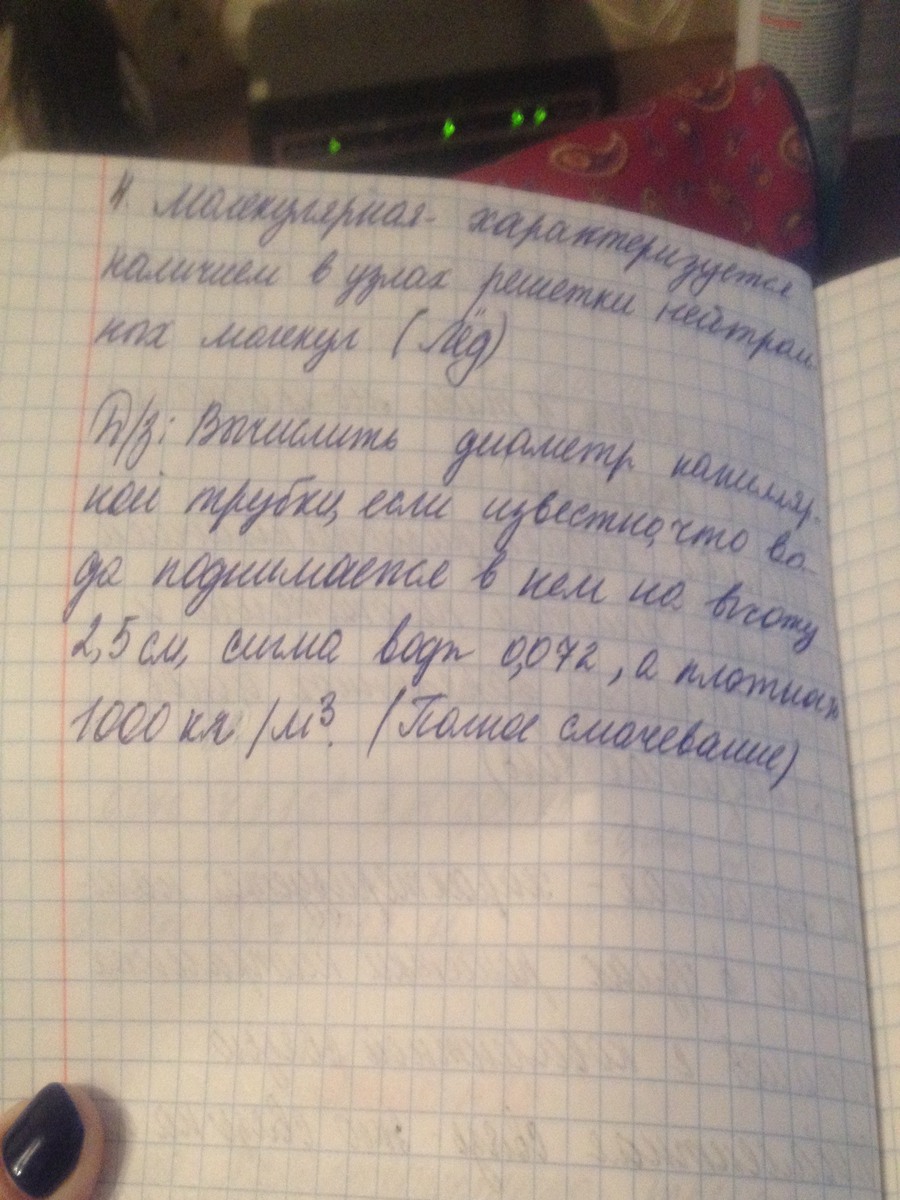 4. Молекулярная- характеризуется
наличием в узлах решетки нейтрал
ных молекул (Лёд)
Д/з: Вычислить диаметр капилляр.
ной трубки, если известно, что во-
да поднимается в нем на высоту
2,5 см, сигма воды 0,072, а плотность
1000 кг/м³. (Полное смачевание)